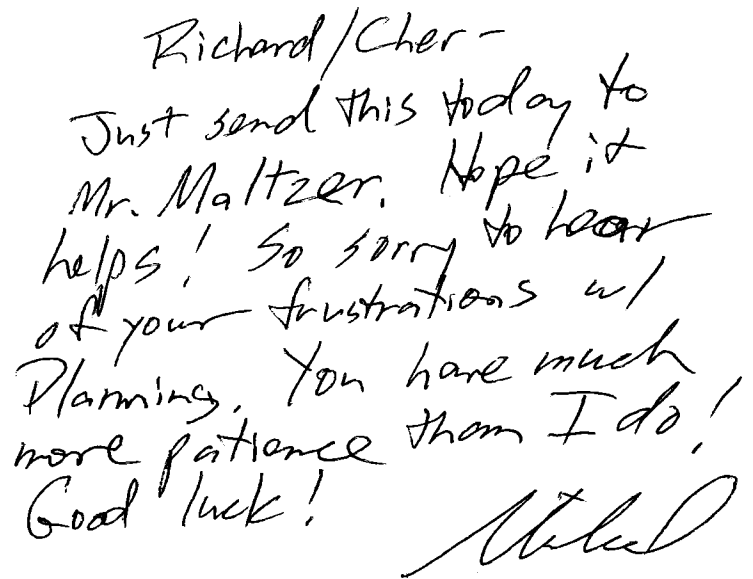 Richard/Cher-
Just send this today to
Mr. Maltzer. Hope it
helps! So sorry to hear
of your frustrations w/
Planning. You have much
more patience than I do!
Good luck!
Michael